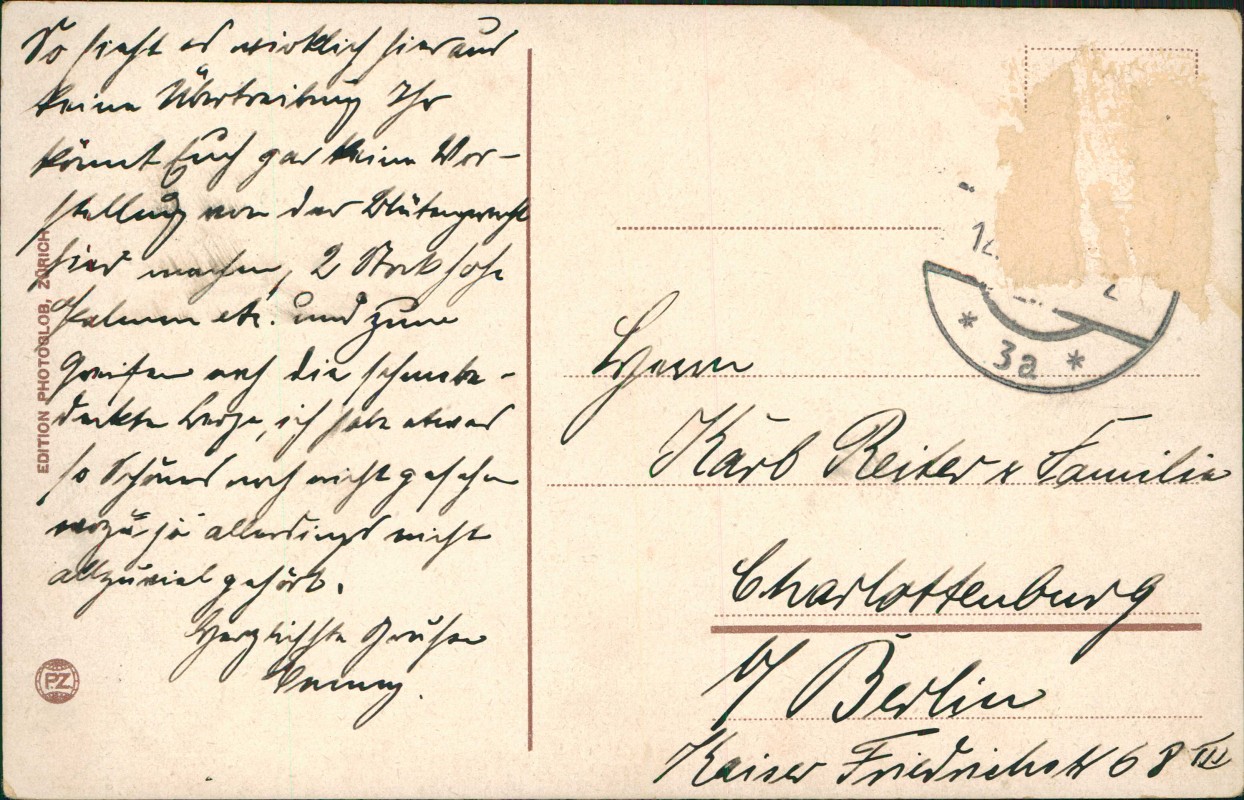 So sieht es wirklich hier aus
keine Übertreibung Ihr
könnt Euch gar keine Vor-
stellung von der Blütenpracht
hier machen, 2 Stock hohe
Palmen etc. und zum
Greifen nah die schneebe-
deckten Berge, ich habe etwas
so Schönes noch nicht gesehen
wozu ja allerdings nicht
allzuviel gehört.
Herzlichste Grüße
EDITION PHOTOGLOB, ZÜRICH
PZ
12.
* 3a *
Herrn
Karl Reiter & Familie
Charlottenburg
b/ Berlin
Kaiser Friedrichstr 68 III